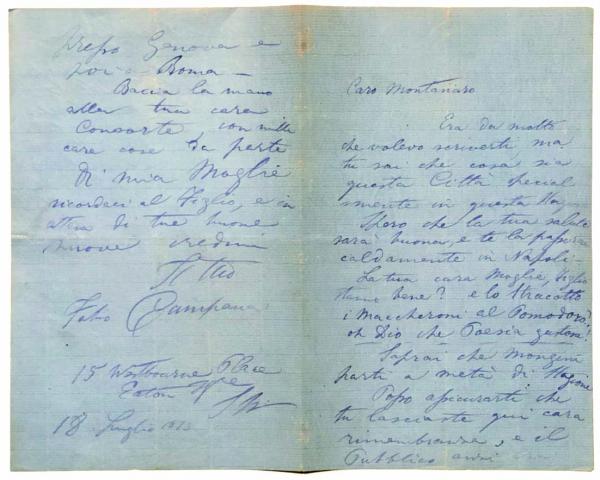 Caro Montanaro
Era da molto
che volevo scriverti ma
tu sai che cosa sia
questa Città special
mente in questa
Spero che la tua salute
sarà buona, e te la passerai
caldamente in Napoli -
La tua cara Moglie, Figlio
stanno bene? e lo Stracotto
i Maccheroni al Pomodoro?
oh Dio che Poesia
Saprai che Mongini
partì a metà di Stagione
Posso assicurarti che
tu lasciaste qui cara
rimembranza, e il
Pubblico anzi
presso Genova e
Roma -
Bacia la mano
alla tua cara
Consorte, con mille
care cose da parte
di mia Moglie
ricordaci al Figlio, e in
attesa di tue buone
nuove credimi
Il tuo
Fabio Campana
15 Westbourne Place
Eaton Sqre
18 Luglio